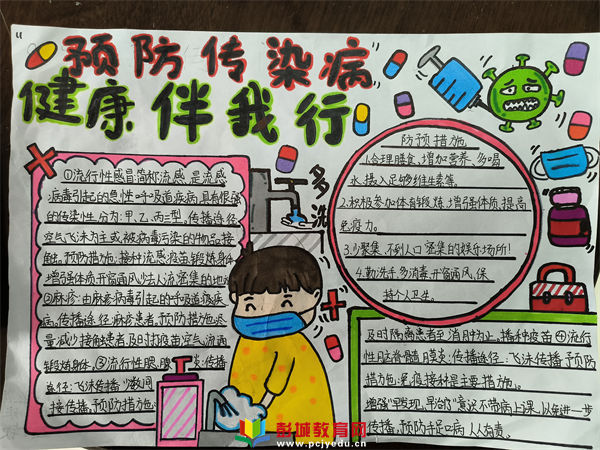 预防传染病
健康伴我行
①流行性感冒简称流感,是流感
病毒引起的急性呼吸道疾病,具有很强
的传染性,分为:甲、乙、丙三型,传播途径
空气飞沫为主或被病毒污染的物品接
触。预防措施:接种流感疫苗,锻炼身体
增强体质开窗通风少去人流密集的地方
②麻疹:由麻疹病毒引起的呼吸道疾
病,传播途径:麻疹患者,预防措施:尽
量减少接触患者,及时接苗
锻炼身体。③流行性腮腺炎:传播
途径:飞沫传播
接传播,预防措施:
多
洗
防预措施
1.合理膳食,增加营养,多喝
水,摄入足够维生素等。
2.积极参加体育锻炼,增强体质,提高
免疫力。
3.少聚集,不到人口密集的娱乐场所!
4.勤洗手,多消毒,开窗通风,保
持个人卫生。
及时隔离患者至消肿为止,播种疫苗④流行
性脑脊髓膜炎:传播途径:飞沫传播,预防
措施:免疫接种是主要措施。
增强"早发现,早治疗"意识不带病上课,以免进一步
传播,预防手足口病人人有责。
彭城教育网
www.pcjyedu.cn